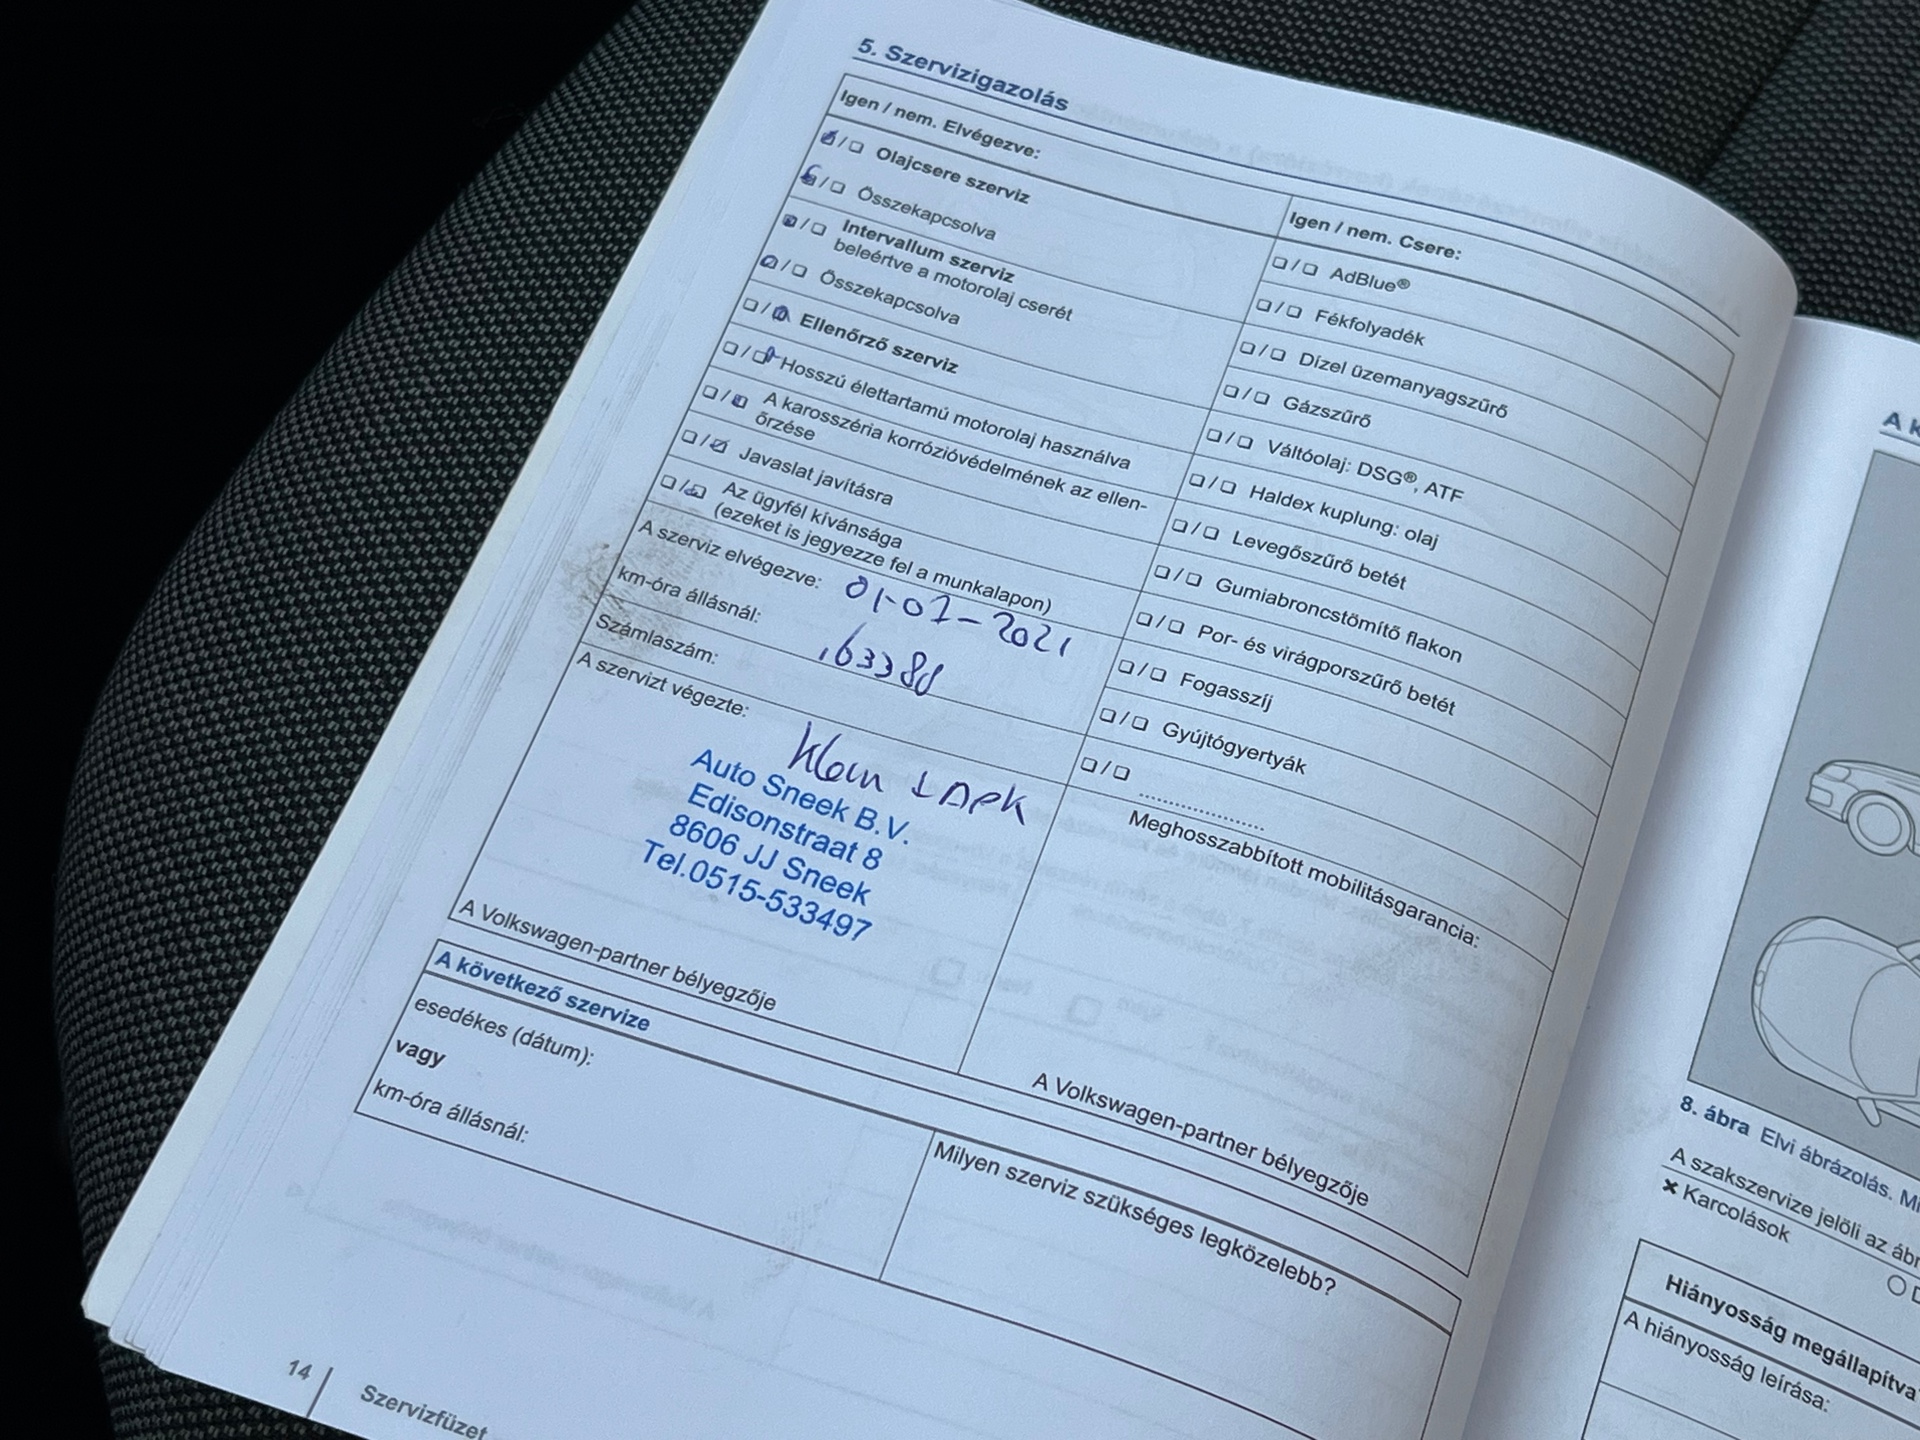 5. Szervizigazolás
Igen / nem. Elvégezve:
Olajcsere szerviz
Összekapcsolva
Intervallum szerviz
beleértve a motorolaj cserét
Összekapcsolva
Ellenőrző szerviz
Hosszú élettartamú motorolaj használva
A karosszéria korrózióvédelmének az ellen-
őrzése
Javaslat javításra
Az ügyfél kívánsága
(ezeket is jegyezze fel a munkalapon)
A szerviz elvégezve: 01-07-2021
km-óra állásnál: 163380
Számlaszám:
A szervizt végezte:
Auto Sneek B.V.
Edisonstraat 8
8606 JJ Sneek
Tel.0515-533497
A Volkswagen-partner bélyegzője
Igen / nem. Csere:
AdBlue®
Fékfolyadék
Dízel üzemanyagszűrő
Gázszűrő
Váltóolaj: DSG®, ATF
Haldex kuplung: olaj
Levegőszűrő betét
Gumiabroncstömítő flakon
Por- és virágporszűrő betét
Fogasszíj
Gyújtógyertyák
Meghosszabbított mobilitásgarancia:
A Volkswagen-partner bélyegzője
A következő szervize
esedékes (dátum):
vagy
km-óra állásnál:
Milyen szerviz szükséges legközelebb?
14
Szervizfüzet
8. ábra Elvi ábrázolás.
A szakszervize jelöli az
Karcolások
Hiányosság
A hiányosság leírása: